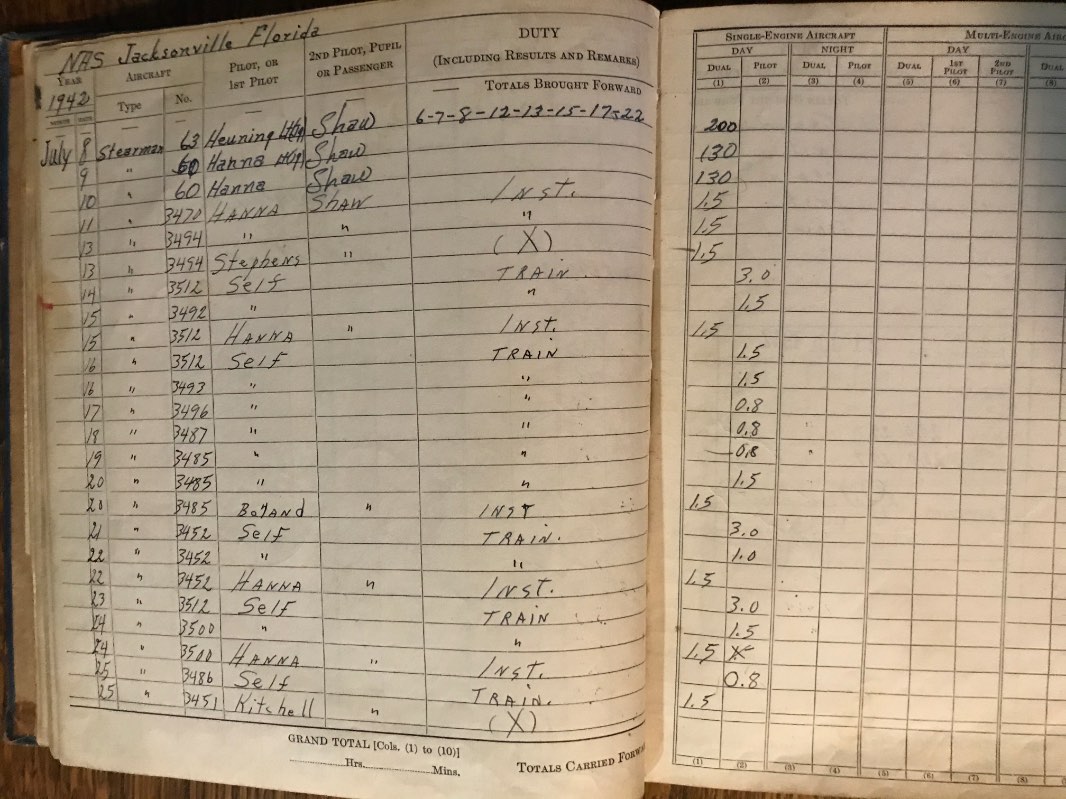 NAS Jacksonville Florida
YEAR AIRCRAFT PILOT, OR 1ST PILOT 2ND PILOT, PUPIL OR PASSENGER DUTY (INCLUDING RESULTS AND REMARKS) SINGLE-ENGINE AIRCRAFT MULTI-ENGINE
DAY NIGHT DAY
1942 Type No. TOTALS BROUGHT FORWARD DUAL PILOT DUAL PILOT DUAL 1ST PILOT 2ND PILOT DUAL
MONTH DATE — — — — — (1) (2) (3) (4) (5) (6) (7) (8)
6-7-8-12-13-15-17-22
July 8 Stearman 63 Heuning Lt(jg) Shaw 200
9 " 60 Hanna Lt(jg) Shaw 130
10 " 60 Hanna Shaw 130
11 " 3470 HANNA SHAW INST. 1.5
13 " 3494 " " " 1.5
13 " 3494 Stephens " (X) 1.5
14 " 3512 Self TRAIN 3.0
15 " 3492 " " 1.5
15 " 3512 HANNA " INST. 1.5
16 " 3512 Self TRAIN 1.5
16 " 3493 " " 1.5
17 " 3496 " " 0.8
18 " 3487 " " 0.8
19 " 3485 " " 0.8
20 " 3485 " " 1.5
20 " 3485 " INST 1.5
21 " 3452 Self TRAIN. 3.0
22 " 3452 " " 1.0
22 " 3452 HANNA " INST. 1.5
23 " 3512 Self TRAIN 3.0
24 " 3500 " " 1.5
24 " 3500 HANNA " INST. 1.5
25 " 3486 Self TRAIN. 0.8
25 " 3451 Kitchell " (X) 1.5
GRAND TOTAL [Cols. (1) to (10)]
Hrs. Mins. TOTALS CARRIED
(1) (2) (3) (4) (5) (6) (7) (8)